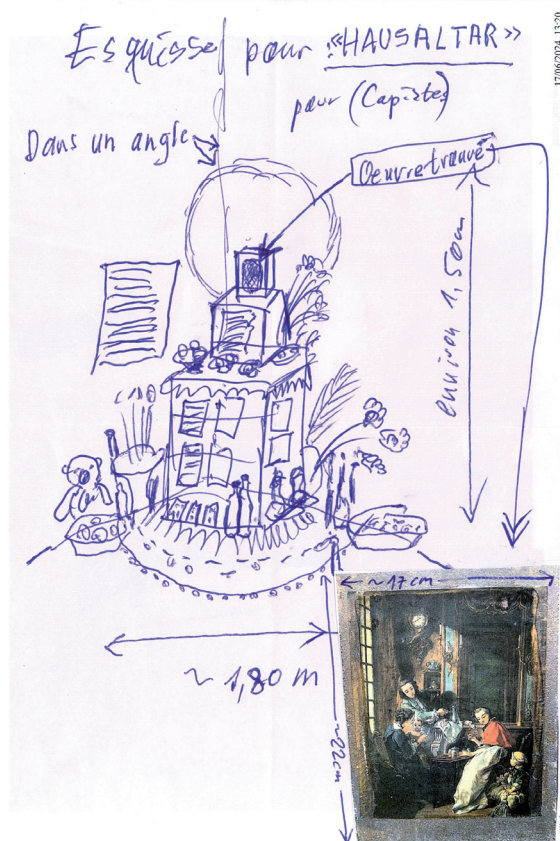 Esquisse pour «HAUSALTAR»
pour (Capistes)
Dans un angle
Oeuvre trouvé
environ 1,50m
~ 17 cm
~ 1,80 m
~22cm
17/06/2024 13:20